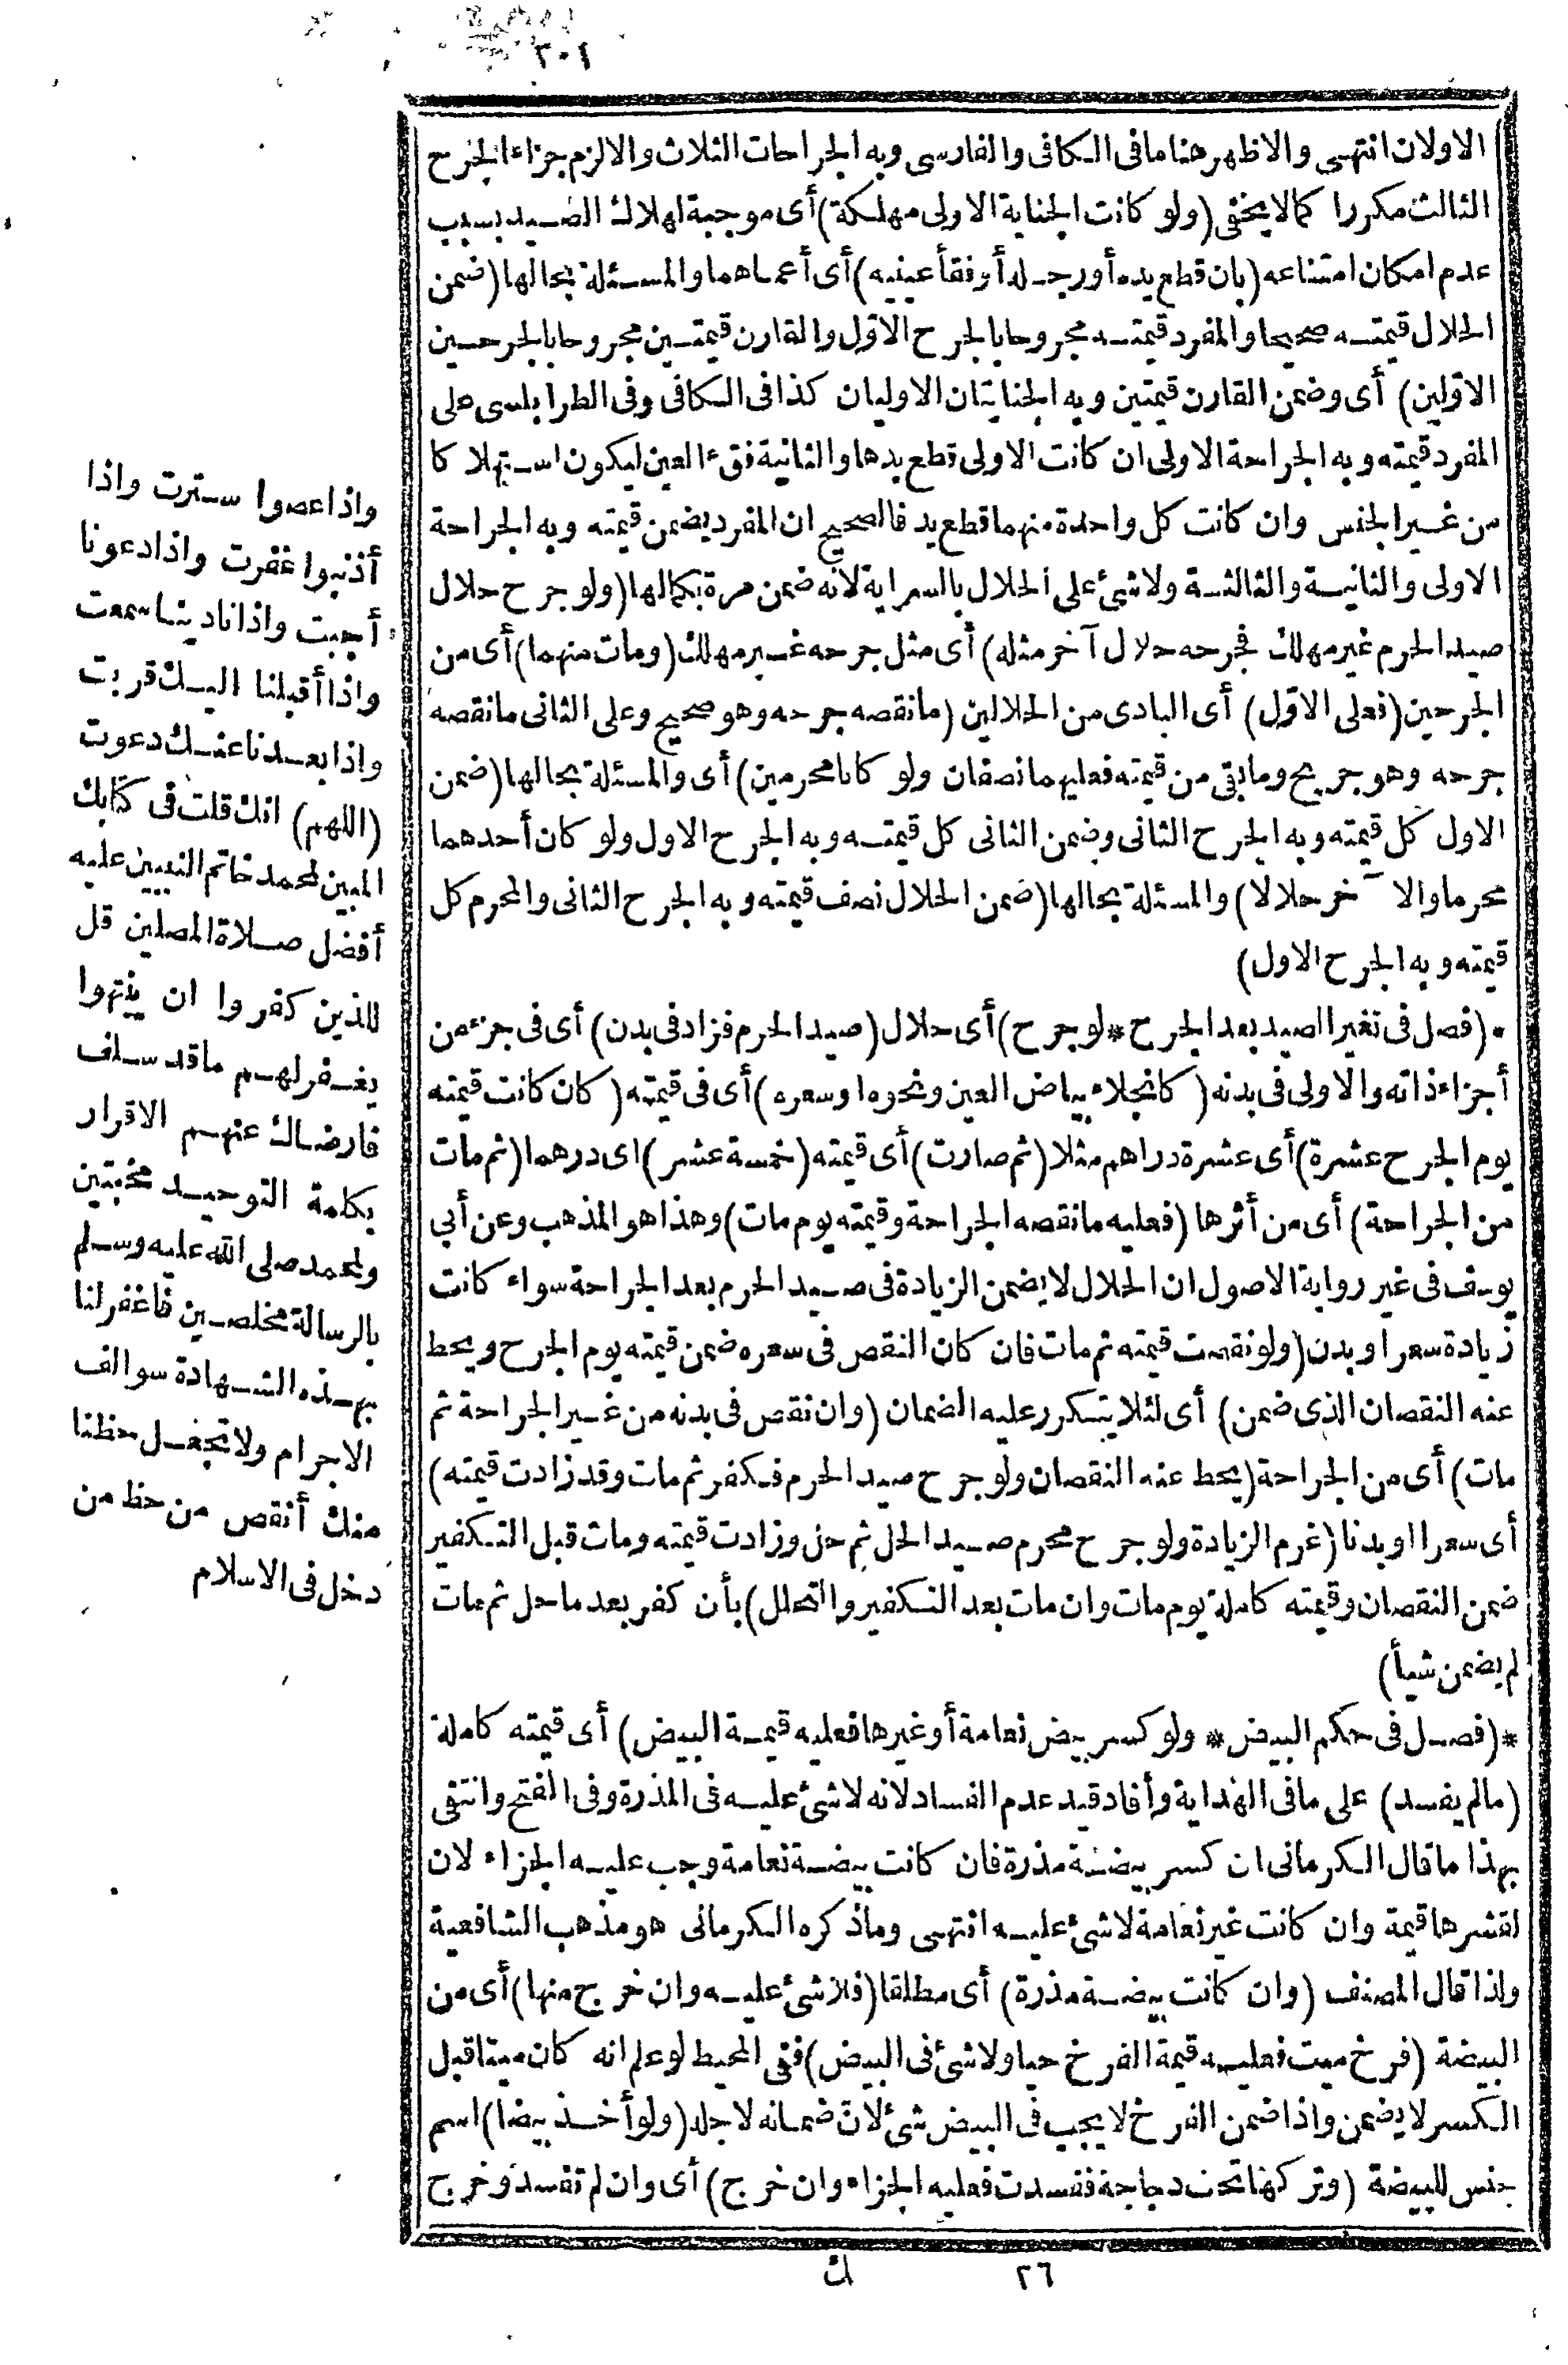 ٢٠١
الاولان انتهى والاظهر هنا ما فى الكافى والفارسى وبه الجراحات الثلاث والا لزم جزاء الجرح
الثالث مكررا كما لا يخفى (ولو كانت الجناية الاولى مهلكة) أى موجبة لهلاك الصيد بسبب
عدم امكان امتناعه (بان قطع يده أو رجله أو فقأ عينيه) أى أعماهما والمسئلة بحالها (ضمن
الحلال قيمته صحيحا والمفرد قيمته مجروحا بالجرح الاوّل والقارن قيمتين مجروحا بالجرحين
الاوّلين) أى وضمن القارن قيمتين وبه الجنايتان الاوليان كذا فى الكافى وفى الطرابلسى على
المفرد قيمته وبه الجراحة الاولى ان كانت الاولى قطع يدها والثانية فقء العين ليكون استهلاكا
من غير الجنس وان كانت كل واحدة منهما قطع يد فالصحيح ان المفرد يضمن قيمته وبه الجراحة
الاولى والثانية والثالثة ولا شئ على الحلال بالسراية لانه ضمن مرة بكمالها (ولو جرح حلال
صيد الحرم غير مهلك فجرحه حلال آخر مثله) أى مثل جرحه غير مهلك (ومات منهما) أى من
الجرحين (فعلى الاوّل) أى البادى من الحلالين (ما نقصه جرحه وهو صحيح وعلى الثانى ما نقصه
جرحه وهو جريح وما بقى من قيمته فعليهما نصفان ولو كانا محرمين) أى والمسئلة بحالها (ضمن
الاول كل قيمته وبه الجرح الثانى وضمن الثانى كل قيمته وبه الجرح الاول ولو كان أحدهما
محرما والآخر حلالا) والمسئلة بحالها (ضمن الحلال نصف قيمته وبه الجرح الثانى والمحرم كل
قيمته وبه الجرح الاول)
* (فصل فى تغير الصيد بعد الجرح * لو جرح) أى حلال (صيد الحرم فزاد فى بدن) أى فى جزء من
أجزاء ذاته والاولى فى بدنه (كانجلاء بياض العين ونحوه او سعره) أى فى قيمته (كان كانت قيمته
يوم الجرح عشرة) أى عشرة دراهم مثلا (ثم صارت) أى قيمته (خمسة عشر) اى درهما (ثم مات
من الجراحة) أى من أثرها (فعليه ما نقصه الجراحة وقيمته يوم مات) وهذا هو المذهب وعن أبى
يوسف فى غير رواية الاصول ان الحلال لا يضمن الزيادة فى صيد الحرم بعد الجراحة سواء كانت
زيادة سعر او بدن (ولو نقصت قيمته ثم مات فان كان النقص فى سعره ضمن قيمته يوم الجرح ويحط
عنه النقصان الذى ضمن) أى لئلا يتكرر عليه الضمان (وان نقص فى بدنه من غير الجراحة ثم
مات) أى من الجراحة (يحط عنه النقصان ولو جرح صيد الحرم فكفر ثم مات وقد زادت قيمته)
أى سعرا او بدنا (غرم الزيادة ولو جرح محرم صيد الحل ثم حل وزادت قيمته ومات قبل التكفير
ضمن النقصان وقيمته كاملة يوم مات وان مات بعد التكفير والتحلل) بأن كفر بعد ما حل ثم مات
لم يضمن شيأ)
* (فصل فى حكم البيض * ولو كسر بيض نعامة أو غيرها فعليه قيمة البيض) أى قيمته كاملة
(مالم يفسد) على ما فى الهداية وأفاد قيد عدم الفساد لانه لا شئ عليه فى المذرة وفى الفتح وانتفى
بهذا ما قال الكرمانى ان كسر بيضة مذرة فان كانت بيضة نعامة وجب عليه الجزاء لان
لقشرها قيمة وان كانت غير نعامة لا شئ عليه انتهى وما ذكره الكرمانى هو مذهب الشافعية
ولذا قال المصنف (وان كانت بيضة مذرة) أى مطلقا (فلا شئ عليه وان خرج منها) أى من
البيضة (فرخ ميت فعليه قيمة الفرخ حيا ولا شئ فى البيض) ففى المحيط لو علم انه كان ميتا قبل
الكسر لا يضمن واذا ضمن الفرخ لا يجب فى البيض شئ لانّ ضمانه لاجله (ولو أخذ بيضا) اسم
جنس للبيضة (وتركها تحت دجاجة ففسدت فعليه الجزاء وان خرج) أى وان لم تفسد وخرج
واذا عصوا سترت واذا
أذنبوا غفرت واذا دعونا
أجبت واذا نادينا سمعت
واذا أقبلنا اليك قربت
واذا بعدنا عنك دعوت
(اللهم) انك قلت فى كتابك
المبين لمحمد خاتم النبيين عليه
أفضل صلاة المصلين قل
للذين كفروا ان ينتهوا
يغفر لهم ما قد سلف
فارضاك عنهم الاقرار
بكلمة التوحيد مخبتين
ولمحمد صلى الله عليه وسلم
بالرسالة مخلصين فاغفر لنا
بهذه الشهادة سوالف
الاجرام ولا تجعل حظنا
منك أنقص من حظ من
دخل فى الاسلام
٢٦ ك